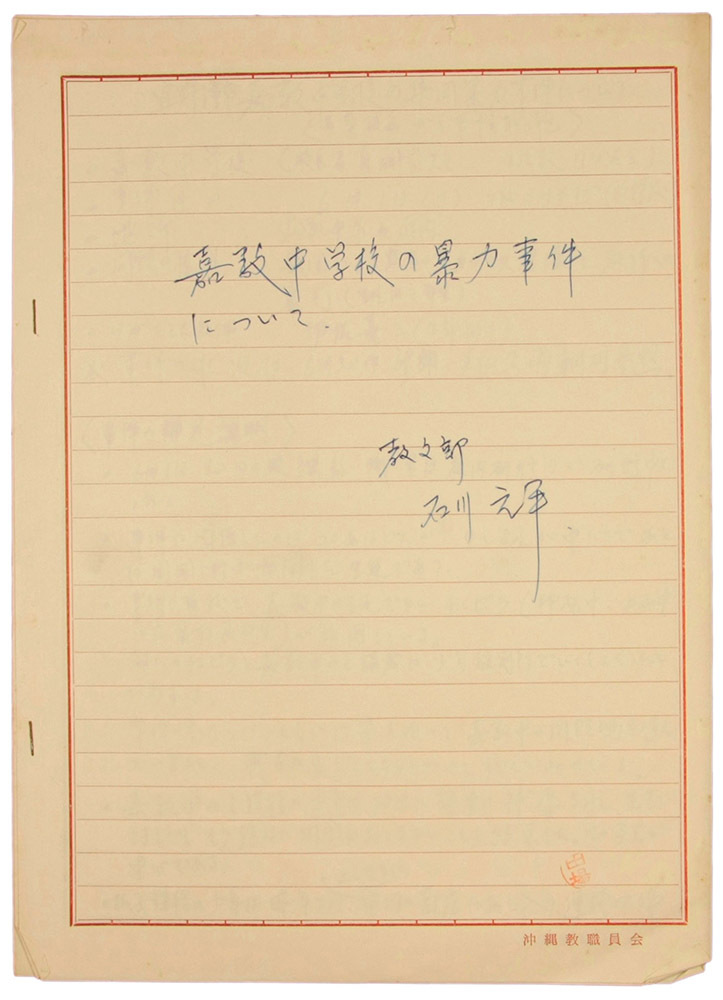 嘉数中学校の暴力事件
について.
教文部
石川 元平
沖縄教職員会